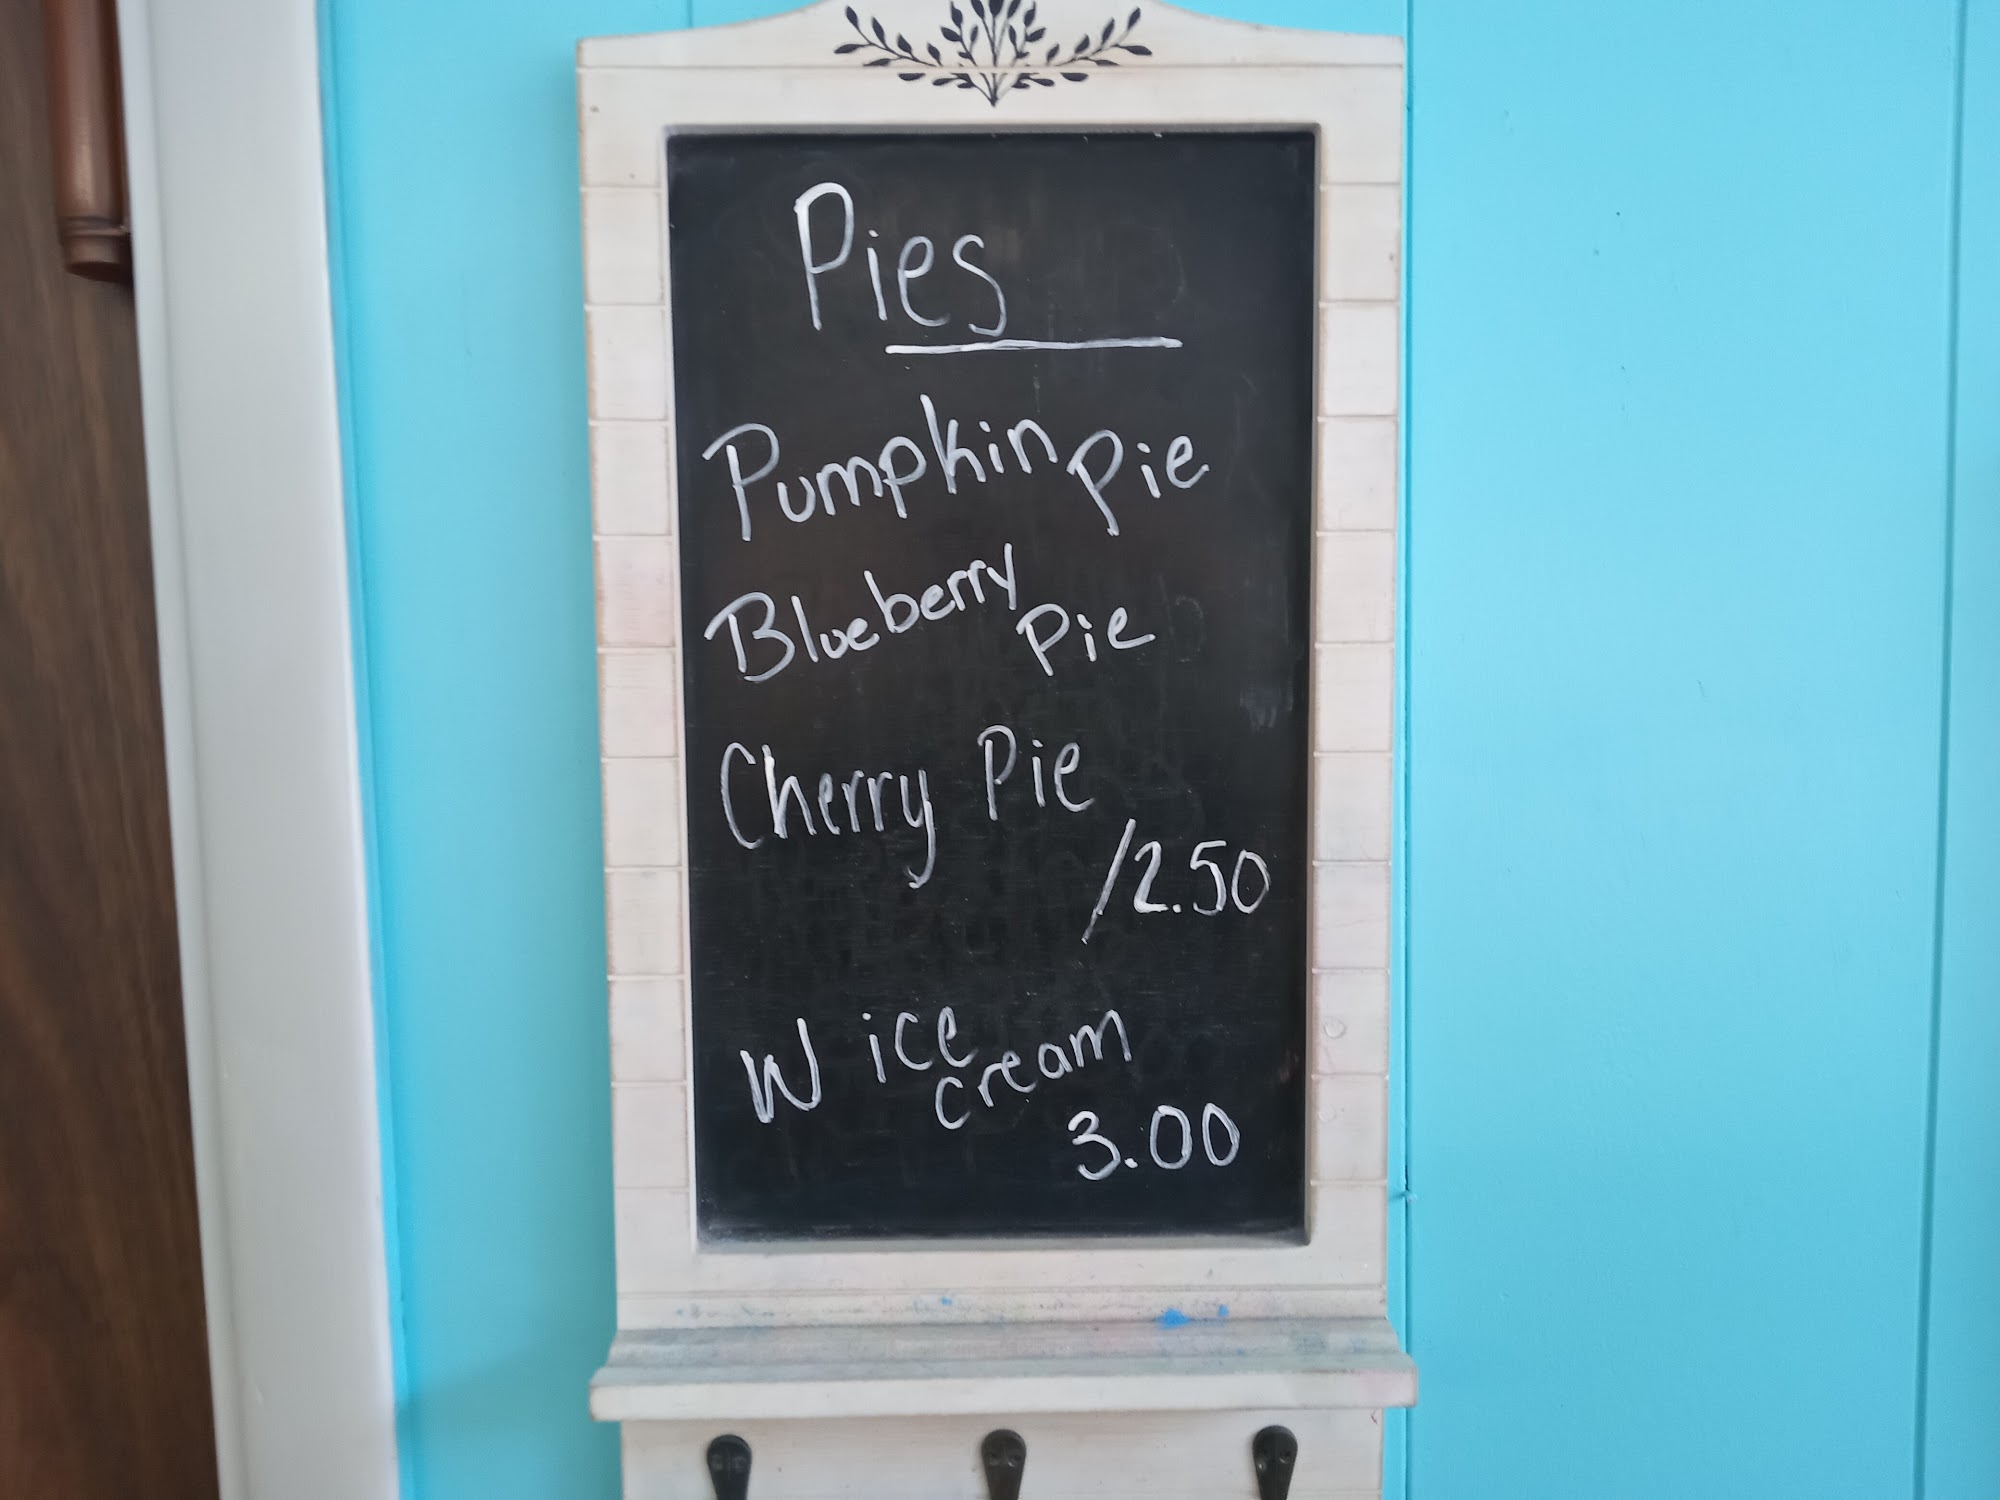 Pies
Pumpkin Pie
Blueberry
Pie
Cherry Pie
/2.50
W ice
cream
3.00